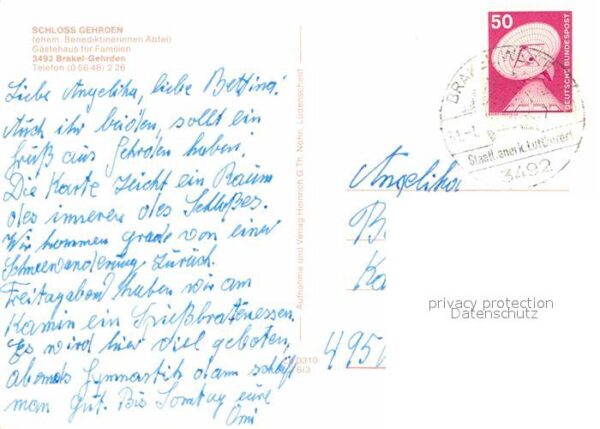 SCHLOSS GEHRDEN
(ehem. Benediktinerinnen Abtei)
Gästehaus für Familien
3492 Brakel-Gehrden
Telefon (0 56 48) 2 26
Liebe Angelika, liebe Bettina!
Auch ihr beiden, sollt ein
Gruß aus Gehrden haben.
Die Karte zeicht ein Raum
des inneren des Schloßes.
Wir kommen grade von einer
Schneewanderung zurück.
Freitagabend haben wir am
Kamin ein Spießbratenessen.
Es wird hier viel geboten,
abends Gymnastik dann schläft
man gut. Bis Sontag eure
Omi
Aufnahme und Verlag Heinrich G. Th. Nohn, Lüdenscheid
0310
6/3
50
DEUTSCHE BUNDESPOST
BRAKEL
Staatl. anerk. Luftkurort
3492
Angelika
B
Ka
495
privacy protection
Datenschutz